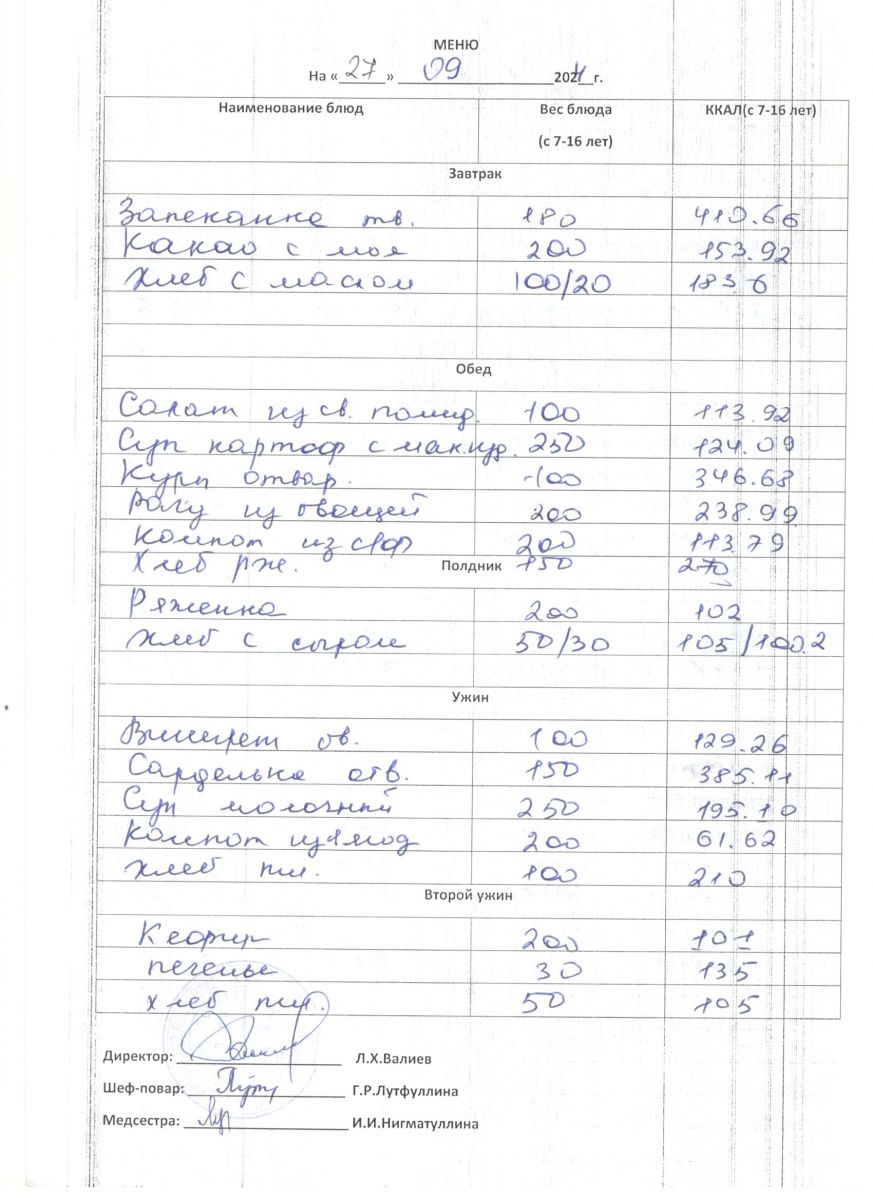 МЕНЮ
На « 27 » 09 2024 г.
Наименование блюд Вес блюда (с 7-16 лет) ККАЛ(с 7-16 лет)
Завтрак
Запеканка тв. 180 410.66
Какао с мол 200 153.92
Хлеб с маслом 100/20 183.6
Обед
Салат из св. помид. 100 113.92
Суп картоф с мак.изд. 250 124.09
Куры отвар. 100 346.68
Рагу из овощей 200 238.99
Компот из с/ф 200 113.79
Хлеб рж. 150 270
Полдник
Ряженка 200 102
Хлеб с сыром 50/30 105/100.2
Ужин
Винегрет ов. 100 129.26
Сарделька отв. 150 385.11
Суп молочный 250 195.10
Компот из ягод 200 61.62
Хлеб пш. 100 210
Второй ужин
Кефир 200 101
печенье 30 135
хлеб пш. 50 105
Директор: Л.Х.Валиев
Шеф-повар: Г.Р.Лутфуллина
Медсестра: И.И.Нигматуллина